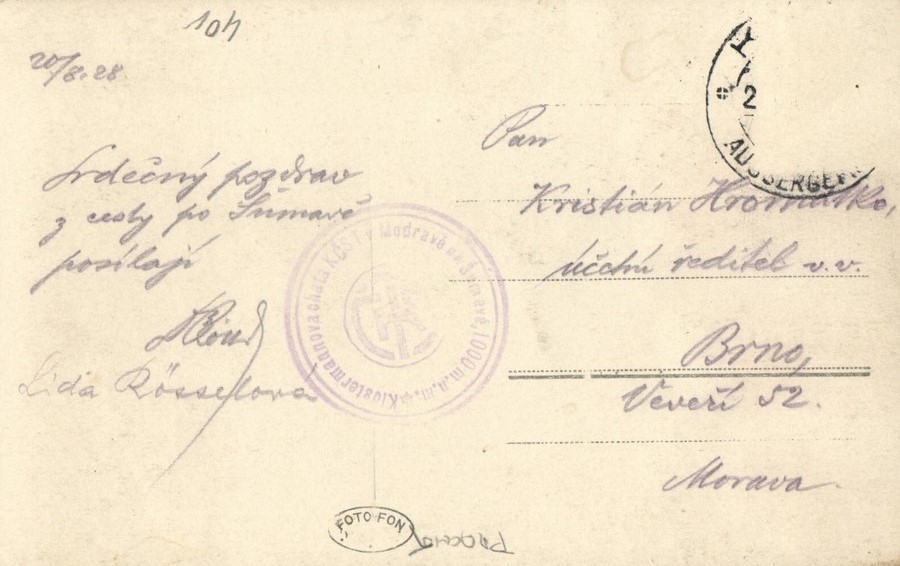 104
20/8.28
Srdečný pozdrav
z cesty po Šumavě
posílají
Lida Rösselová
Klostermannova chata KČST v Modravě na Šumavě, 1000 m.n.m.
Pan
Kristián Hromádko,
účetní ředitel v.v.
Brno,
Veveří 52.
Morava
AUSSERGEFI
FOTO FON